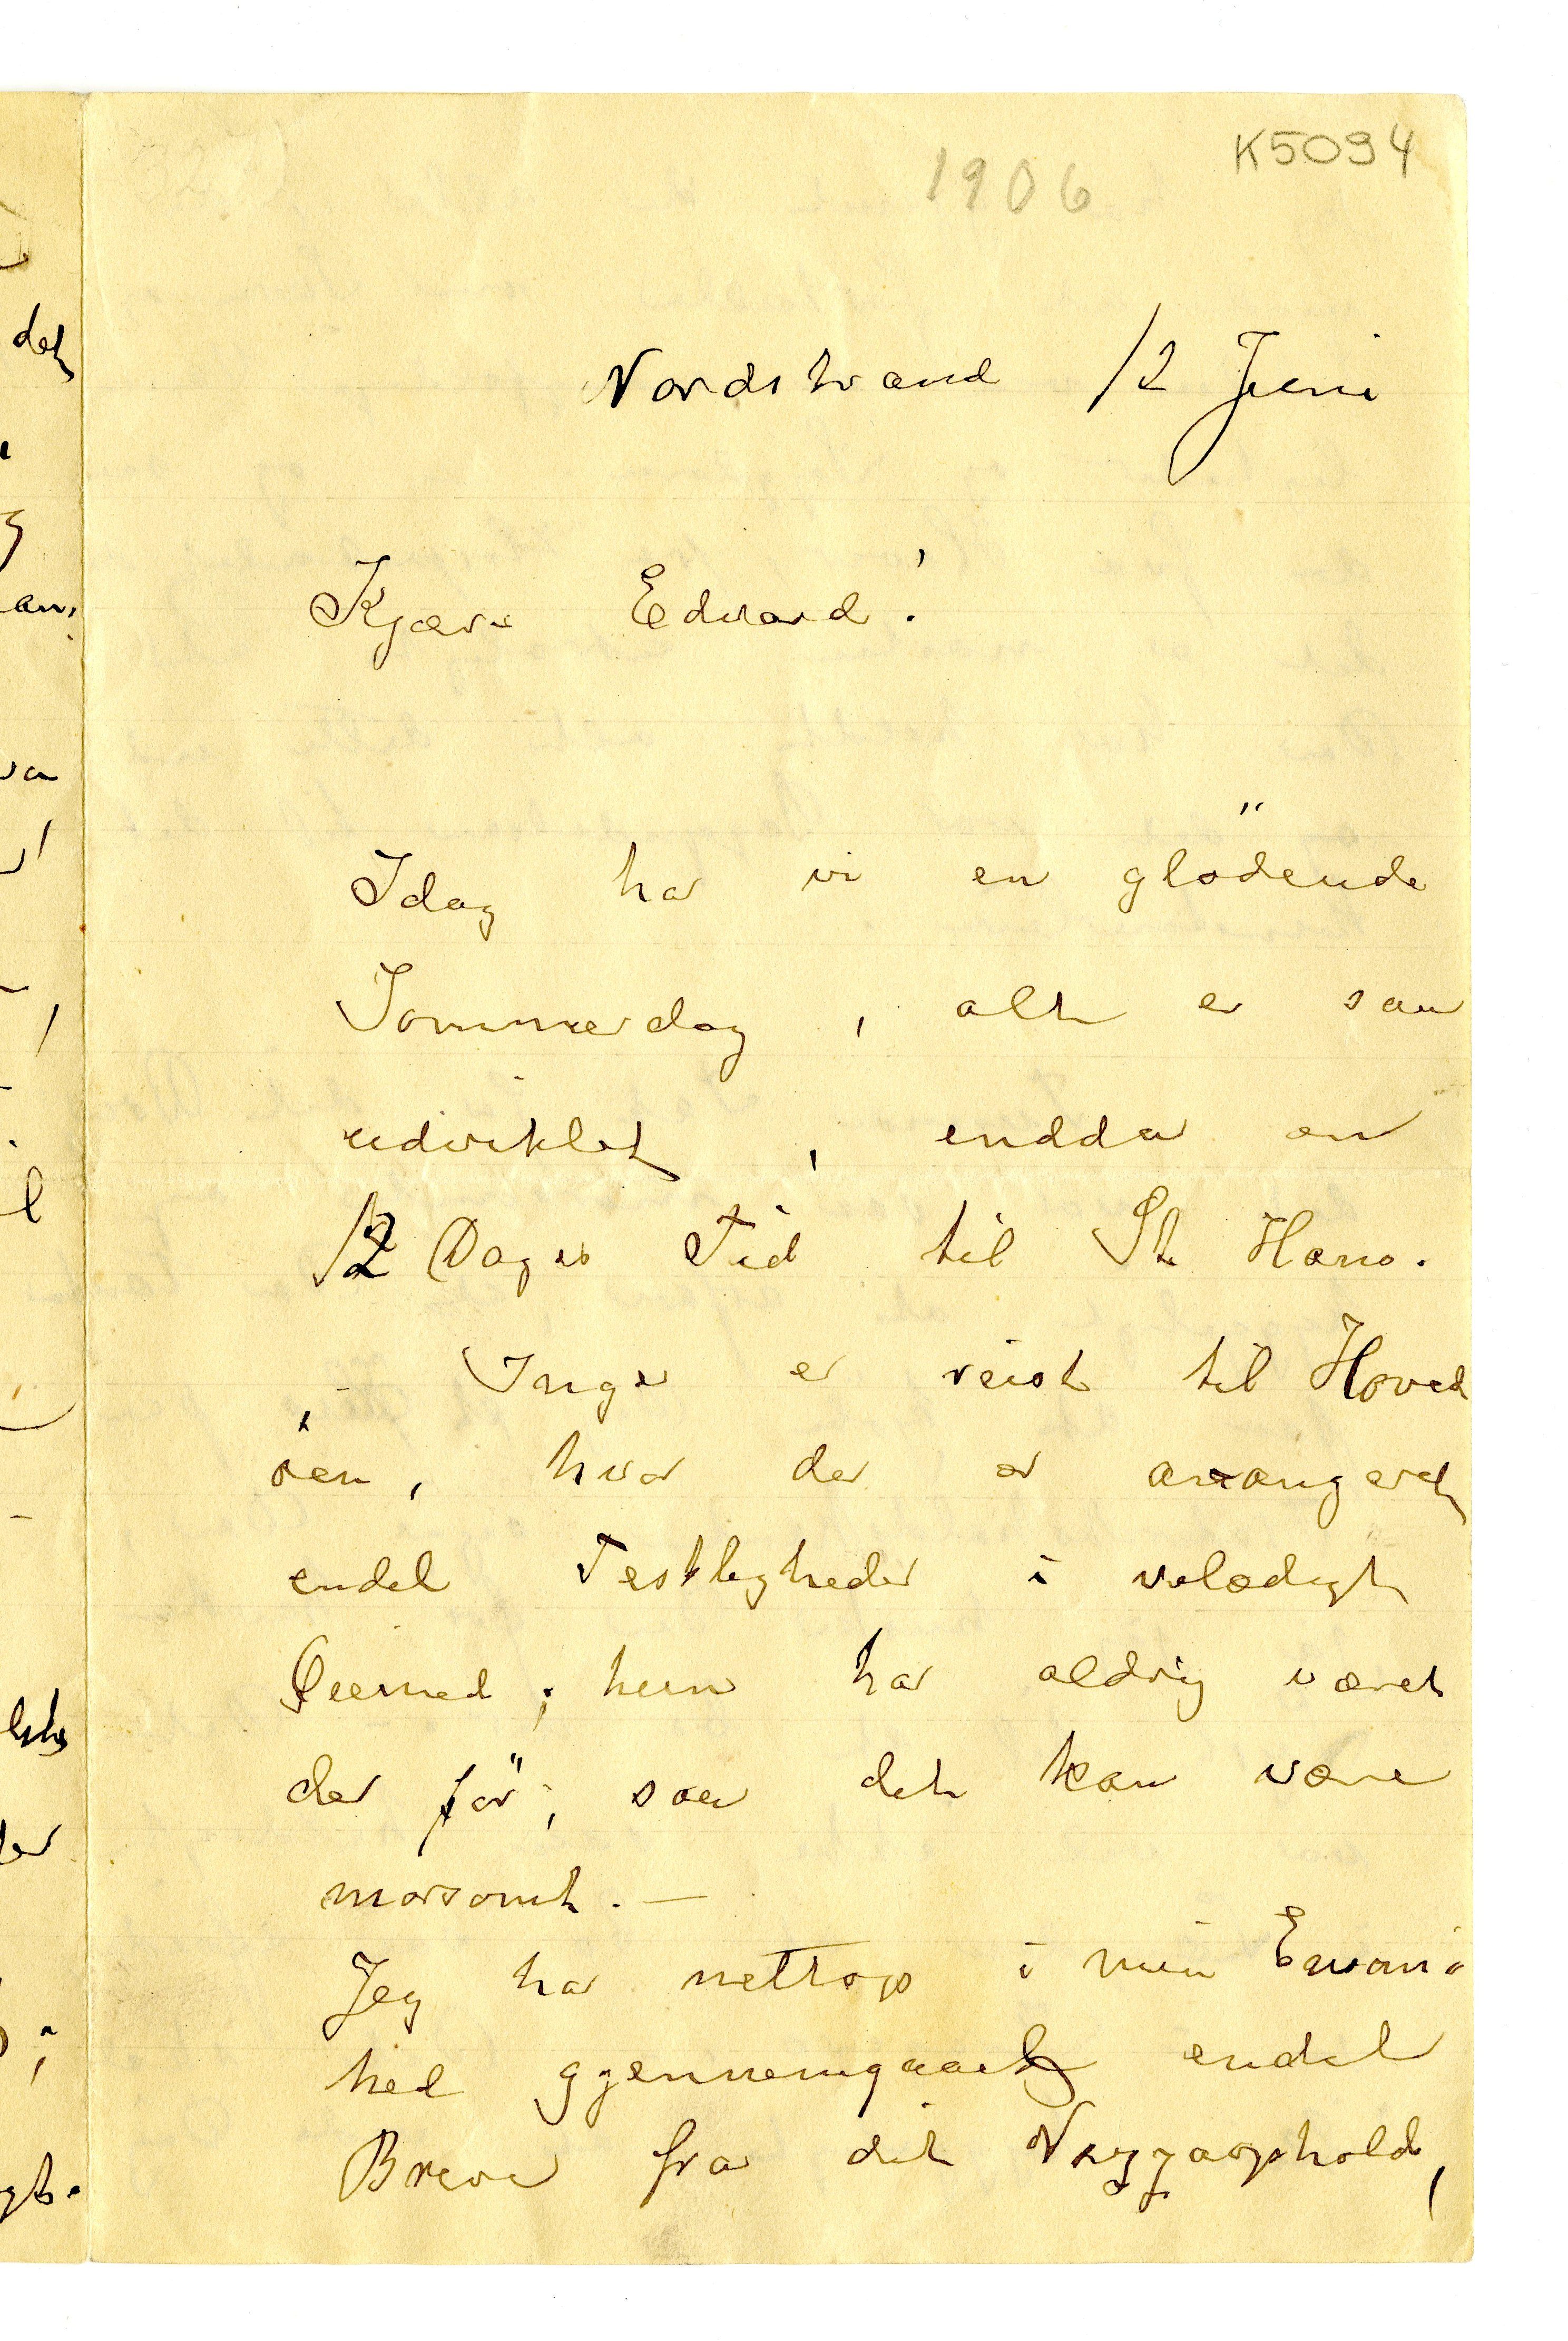 K5094
1906
Nordstrand 12 Juni
Kjære Edvard!
Idag har vi en glödende
Sommerdag, alt er saa
udviklet, endda en
12 Dages Tid til St Hans.
- Inger er reist til Hoved
öen, hvor der er arrangeret
endel Festligheder i veldædigt
Öiemed; hun har aldrig været
der för; saa det kan være
morsomt. —
Jeg har nettop i min Ensom
hed gjennemgaaet endel
Breve fra dit Nizzaophold,